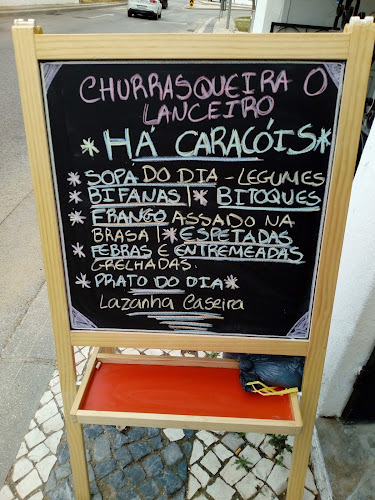 CHURRASQUEIRA O
LANCEIRO
*HÁ CARACÓIS*
*SOPA DO DIA - LEGUMES
*BIFANAS | *BITOQUES
*FRANGO ASSADO NA
BRASA | *ESPETADAS
*FEBRAS E ENTREMEADAS
GRELHADAS.
*PRATO DO DIA*
Lazanha Caseira